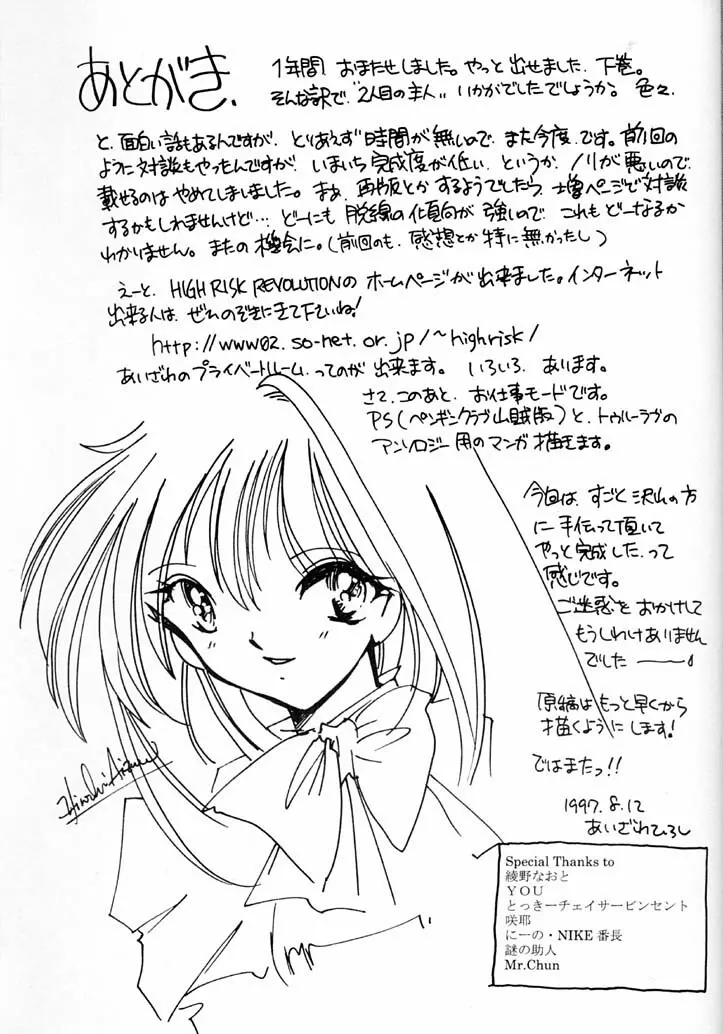 あとがき.
1年間、おまたせしました。やっと出せました、下巻。
そんな訳で、"2人目の主人"、いかがでしたでしょうか。色々
と、面白い話もあるんですが、とりあえず時間が無いので、また今度、です。前回の
ように対談もやったんですが、いまいち完成度が低い、というか、ノリが悪いので、
載せるのはやめてしましました。まあ、再版とかするようでしたら、増ページで対談
するかもしれませんけど…どーにも脱線の傾向が強いので、これもどーなるか
わかりません。またの機会に。(前回のも、感想とか特に無かったし)
えーと、HIGH RISK REVOLUTIONのホームページが出来ました。インターネット
出来る人は、ぜひのぞきにきて下さいね!
http://www02.so-net.or.jp/~highrisk/
あいざわのプライベートルーム、ってのが出来ます。いろいろ、あります。
さて、このあと、お仕事モードです。
PS(ペンギンクラブ山賊版)と、トゥルーラヴの
アンソロジー用のマンガ描きます。
今回は、すごと沢山の方
に手伝って頂いて
やっと完成した、って
感じです。
ご迷惑をおかけして
もうしわけありません
でした――
原稿はもっと早くから
描くようにします!
ではまたっ!!
1997.8.12
あいざわひろし
Hiroshi Aizawa
Special Thanks to
綾野なおと
YOU
とっきーチェイサービンセント
咲耶
にーの・NIKE番長
謎の助人
Mr.Chun